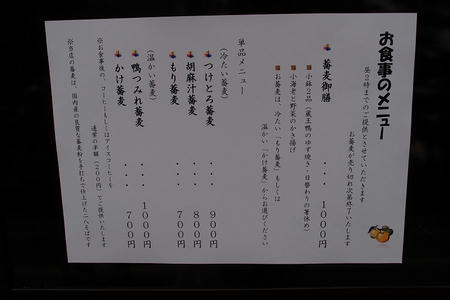 お食事のメニュー
昼２時までのご提供とさせていただきます
お蕎麦が売り切れ次第終了いたします
蕎麦御膳 ・・・ １０００円
小鉢２品（蔵王鴨のゆず焼き・日替わりの箸休め）
小海老と野菜のかき揚げ
お蕎麦は、冷たい「もり蕎麦」もしくは
温かい「かけ蕎麦」からお選びください
単品メニュー
（冷たい蕎麦）
つけとろ蕎麦 ・・・ ９００円
胡麻汁蕎麦 ・・・ ８００円
もり蕎麦 ・・・ ７００円
（温かい蕎麦）
鴨つみれ蕎麦 ・・・ １０００円
かけ蕎麦 ・・・ ７００円
※お食事後の、コーヒーもしくはアイスコーヒーを
通常の半額（２００円）でご提供いたします
※当店の蕎麦は、国内産の良質な蕎麦粉を手打ちで仕上げた二八そばです